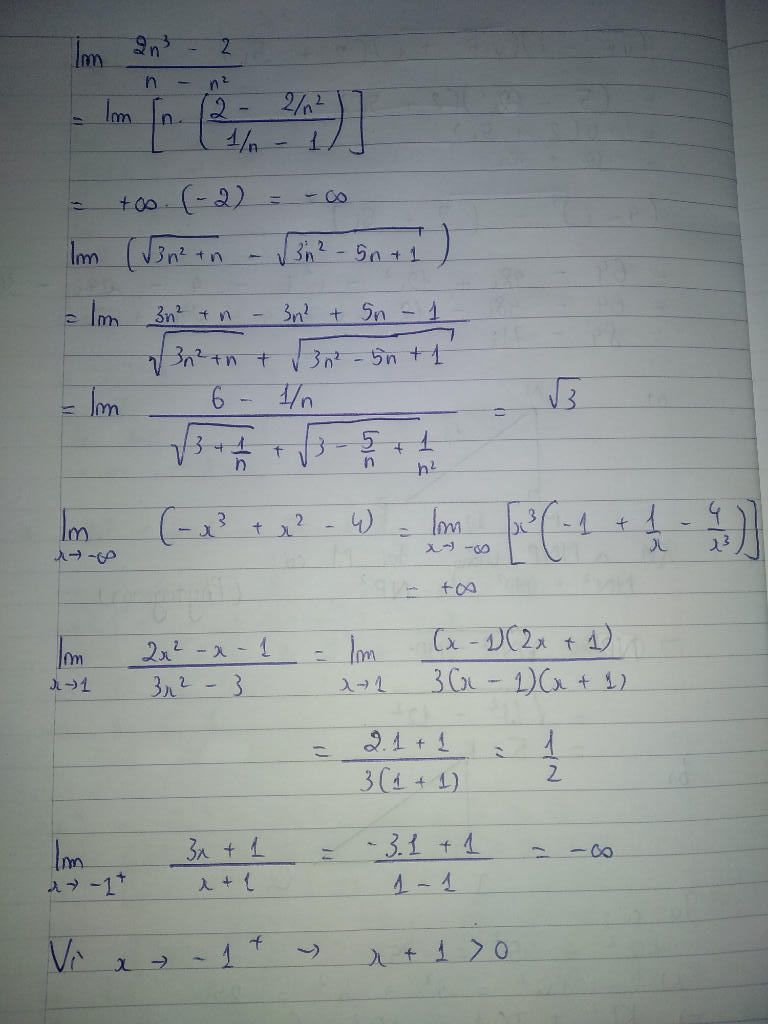 lim (2n³ - 2)/(n - n²)
= lim [n. ((2 - 2/n²)/(1/n - 1))]
= +∞. (-2) = -∞
lim (√(3n² + n) - √(3n² - 5n + 1))
= lim (3n² + n - 3n² + 5n - 1)/(√(3n² + n) + √(3n² - 5n + 1))
= lim (6 - 1/n)/(√(3 + 1/n) + √(3 - 5/n + 1/n²)) = √3
lim x→-∞ (-x³ + x² - 4) = lim x→-∞ [x³(-1 + 1/x - 4/x³)]
= +∞
lim x→1 (2x² - x - 1)/(3x² - 3) = lim x→1 ((x - 1)(2x + 1))/(3(x - 1)(x + 1))
= (2.1 + 1)/(3(1 + 1)) = 1/2
lim x→-1⁺ (3x + 1)/(x + 1) = (-3.1 + 1)/(1 - 1) = -∞
Vì x → -1⁺ → x + 1 > 0